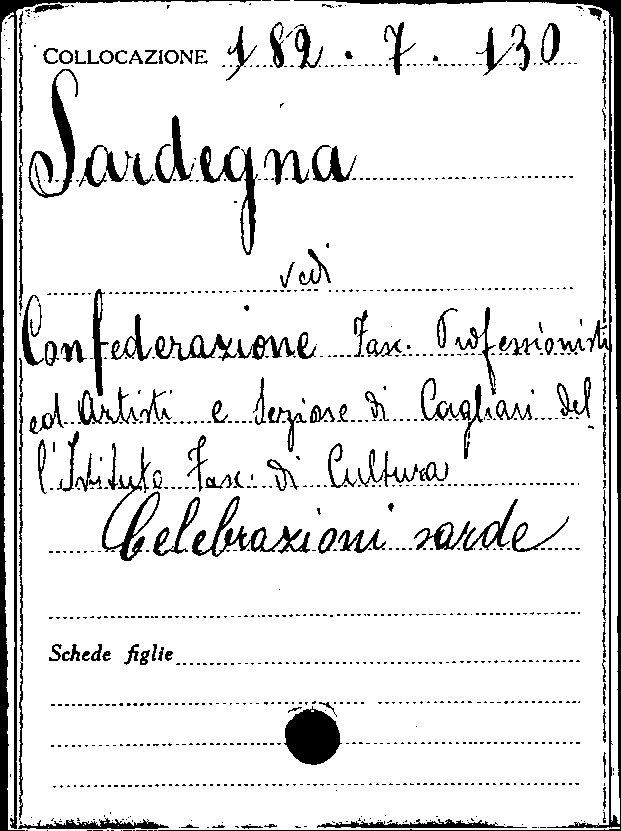 COLLOCAZIONE 182.7.130
Sardegna
vedi
Confederazione Fasc. Professionisti
ed Artisti e Sezione di Cagliari del
l'Istituto Fasc. di Cultura
Celebrazioni sarde
Schede figlie